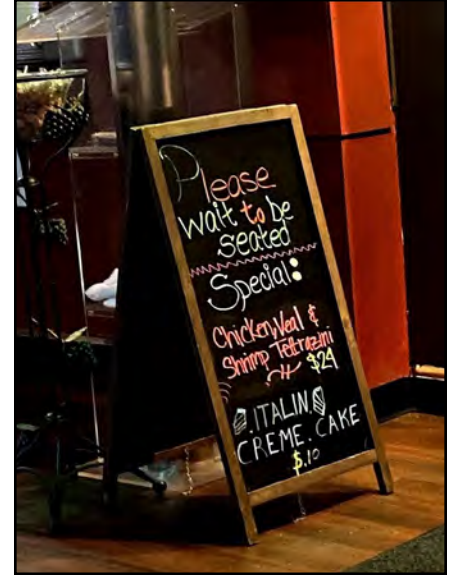 Please
wait to be
Seated
Special:
Chicken, Veal &
Shrimp Tettrazini
$24
.ITALIN.
CREME. CAKE
$.10